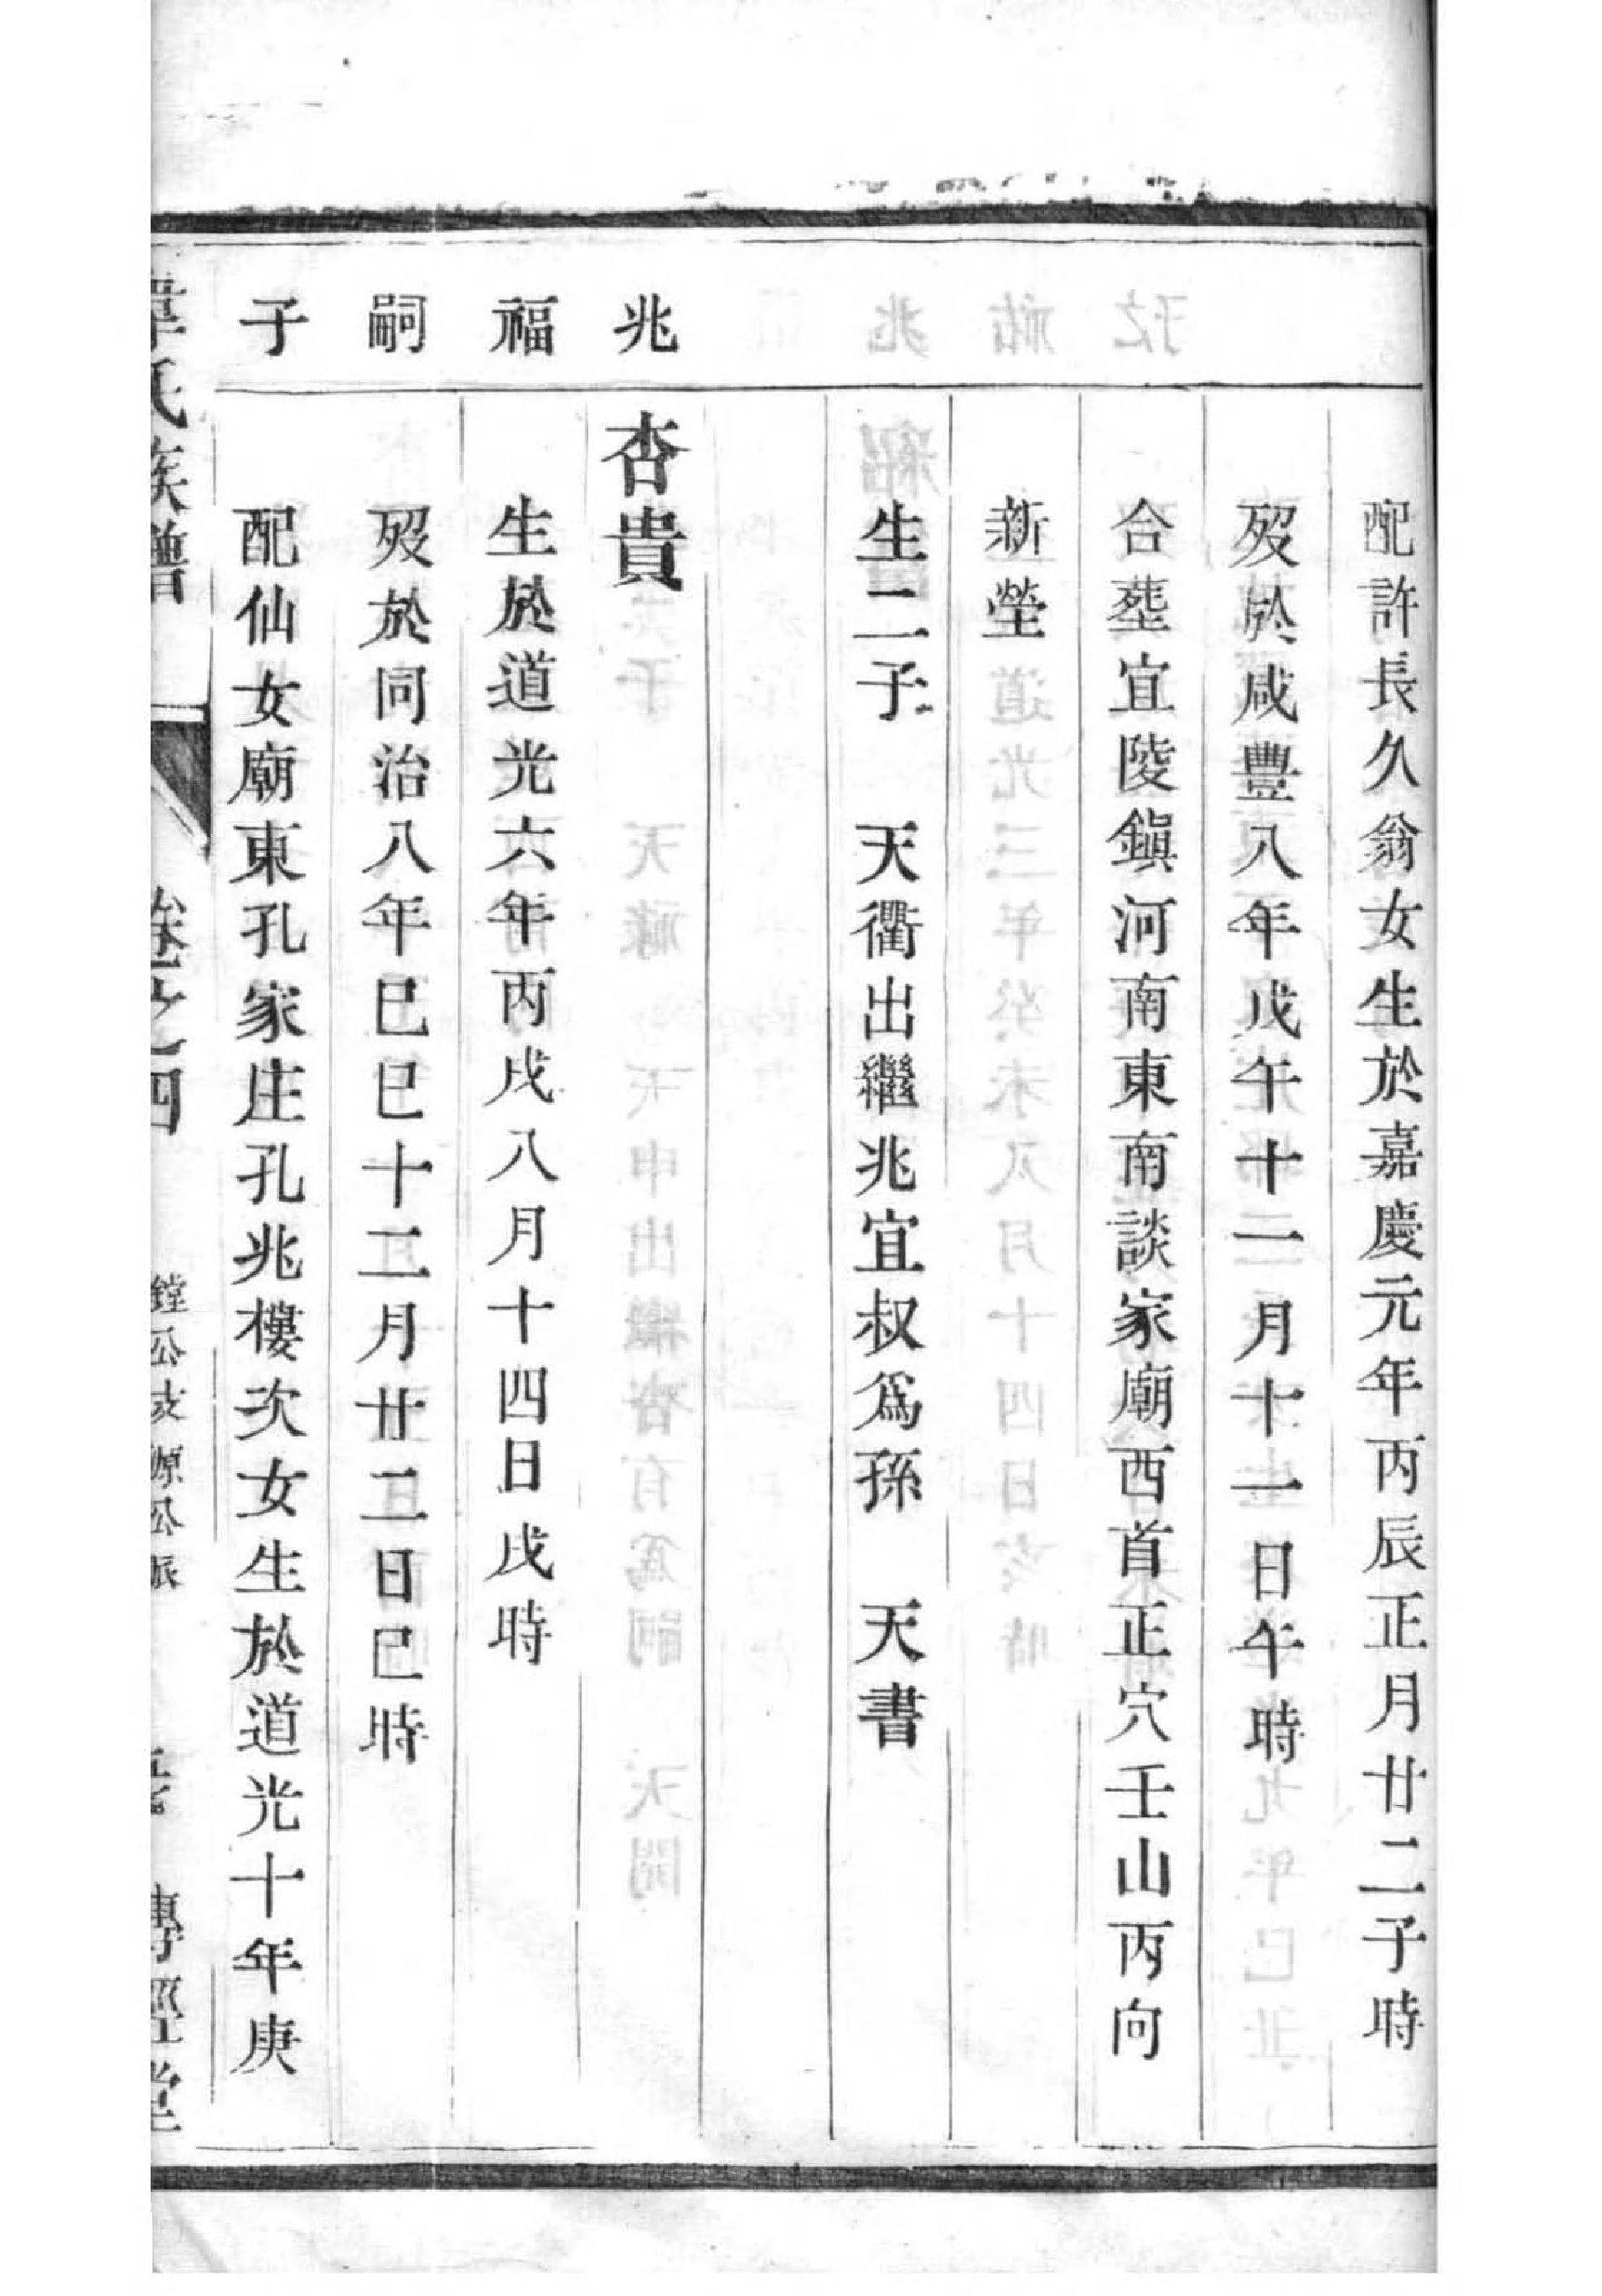 配許長久翁女生於嘉慶元年丙辰正月廿二子時
歿於咸豐八年戊午十二月十一日午時
合塟宜陵鎭河南東南談家廟西首正穴壬山丙向
新塋
生二子 天衢出繼兆宜叔爲孫 天書
兆福嗣子
杏貴
生於道光六年丙戌八月十四日戌時
歿於同治八年巳巳十二月廿二日巳時
配仙女廟東孔家庄孔兆樓次女生於道光十年庚
韋氏族譜
卷之四
鏜公支源公派
傳經堂